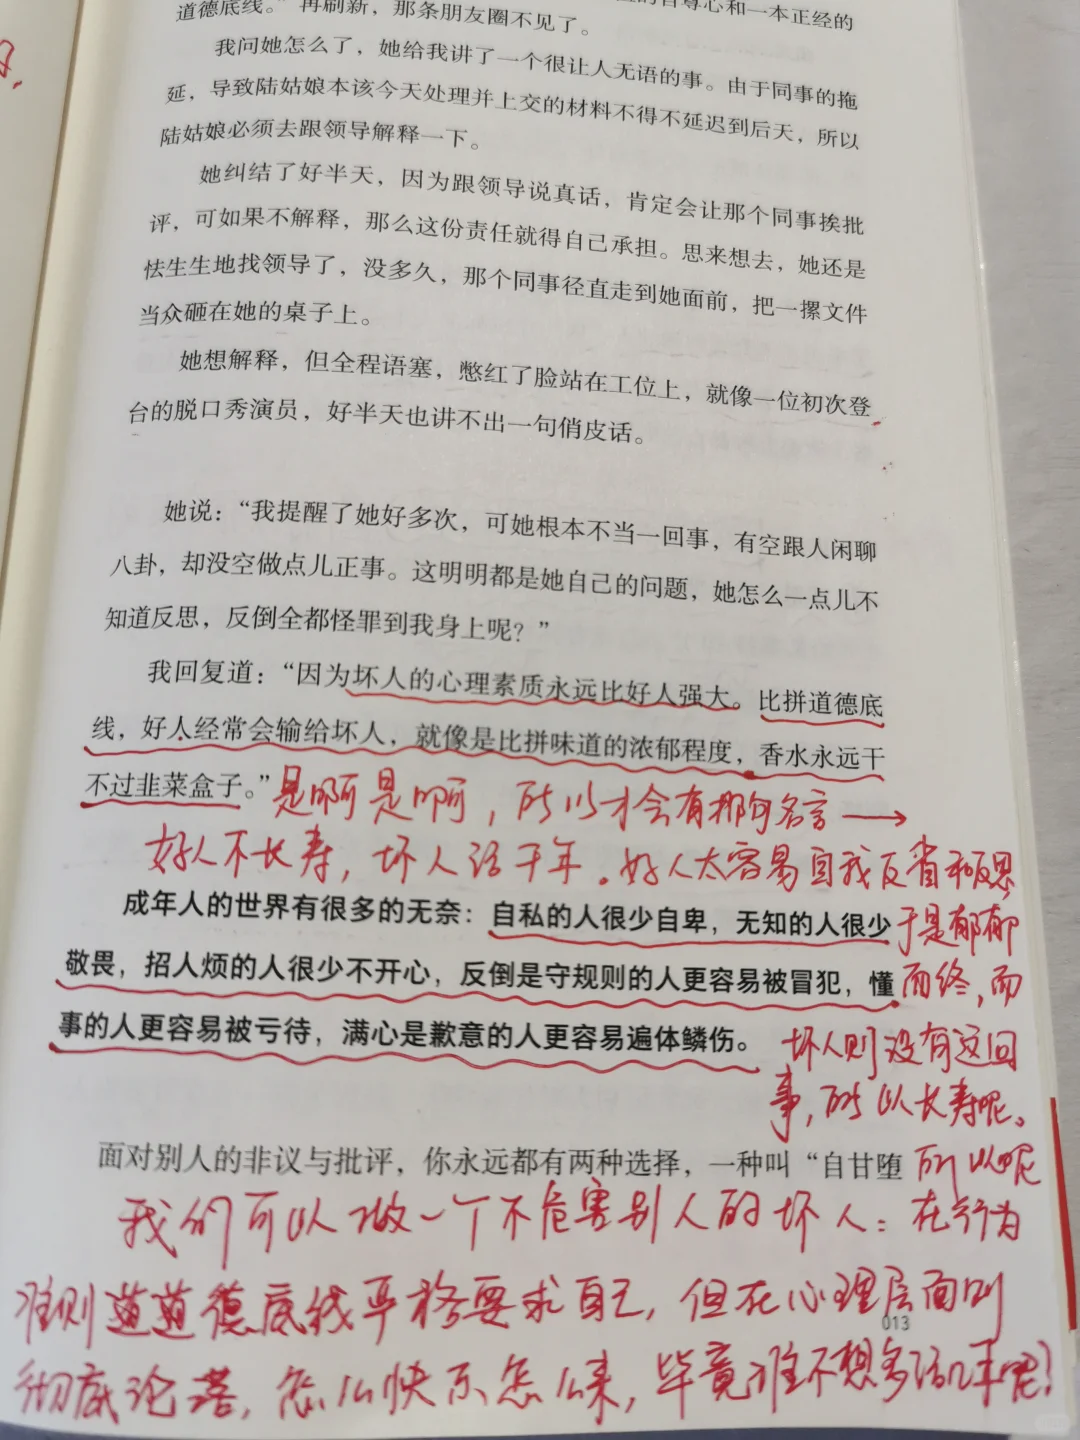 的自尊心和一本正经的
道德底线。”再刷新，那条朋友圈不见了。
我问她怎么了，她给我讲了一个很让人无语的事。由于同事的拖
延，导致陆姑娘本该今天处理并上交的材料不得不延迟到后天，所以
陆姑娘必须去跟领导解释一下。
她纠结了好半天，因为跟领导说真话，肯定会让那个同事挨批
评，可如果不解释，那么这份责任就得自己承担。思来想去，她还是
怯生生地找领导了，没多久，那个同事径直走到她面前，把一摞文件
当众砸在她的桌子上。
她想解释，但全程语塞，憋红了脸站在工位上，就像一位初次登
台的脱口秀演员，好半天也讲不出一句俏皮话。
她说：“我提醒了她好多次，可她根本不当一回事，有空跟人闲聊
八卦，却没空做点儿正事。这明明都是她自己的问题，她怎么一点儿不
知道反思，反倒全都怪罪到我身上呢？”
我回复道：“因为坏人的心理素质永远比好人强大。比拼道德底
线，好人经常会输给坏人，就像是比拼味道的浓郁程度，香水永远干
不过韭菜盒子。”是啊是啊，所以才会有那句名言→
好人不长寿，坏人活千年。好人太容易自我反省和反思，
成年人的世界有很多的无奈：自私的人很少自卑，无知的人很少
于是郁郁
敬畏，招人烦的人很少不开心，反倒是守规则的人更容易被冒犯，懂
而终，而
事的人更容易被亏待，满心是歉意的人更容易遍体鳞伤。
坏人则没有这回
事，所以长寿呢。
面对别人的非议与批评，你永远都有两种选择，一种叫“自甘堕
所以呢
我们可以做一个不危害别人的坏人：在行为
准则道德底线严格要求自己，但在心理层面则
013
彻底论落，怎么快乐怎么来，毕竟谁不想多活几年呢？